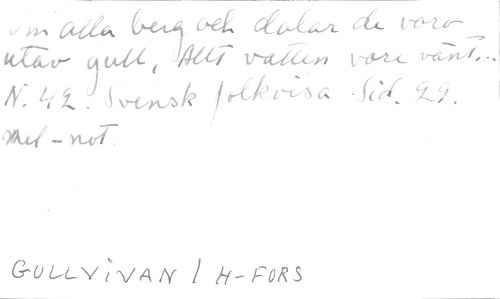 Om alla berg och dalar de voro
utav gull, Allt vatten vore vänt...
N. 42. Svensk folkvisa Sid. 29.
mel-not.
GULLVIVAN / H-FORS